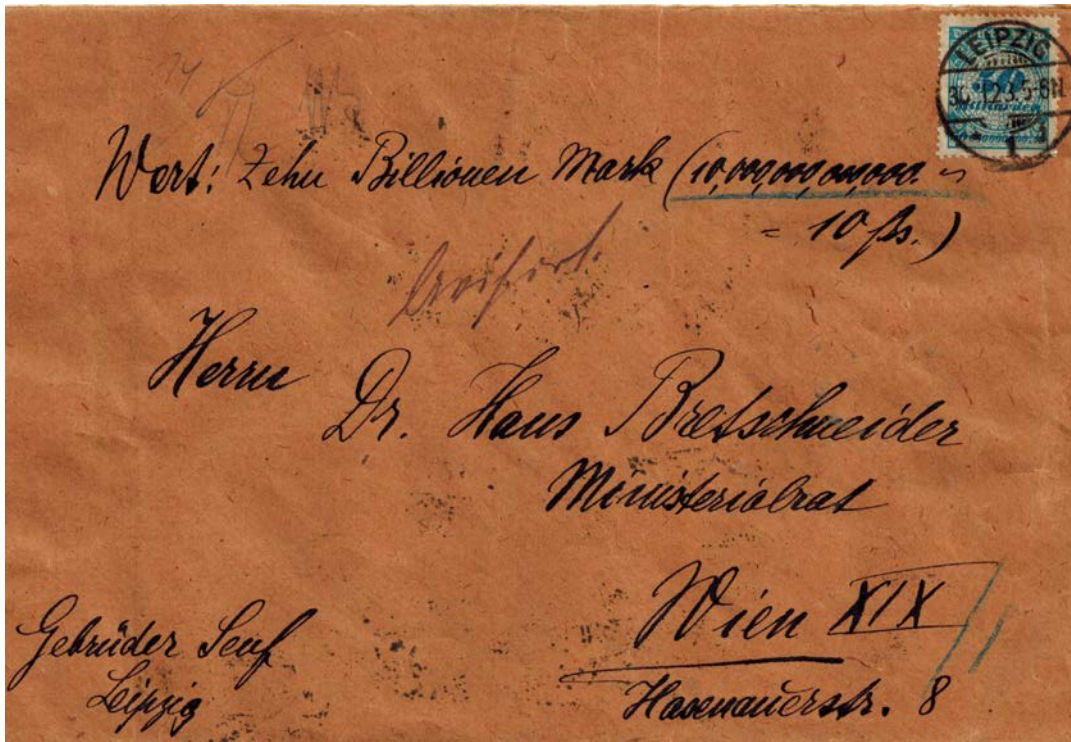 LEIPZIG
30.12.23.5-6N
1
50
Milliarden
Wert: Zehn Billionen Mark (10,000,000,000,000.-
= 10
avisiert.
Herrn
Dr. Hans Bretschneider
Ministerialrat
Wien XIX
Hasenauerstr. 8
Gebrüder Senf
Leipzig